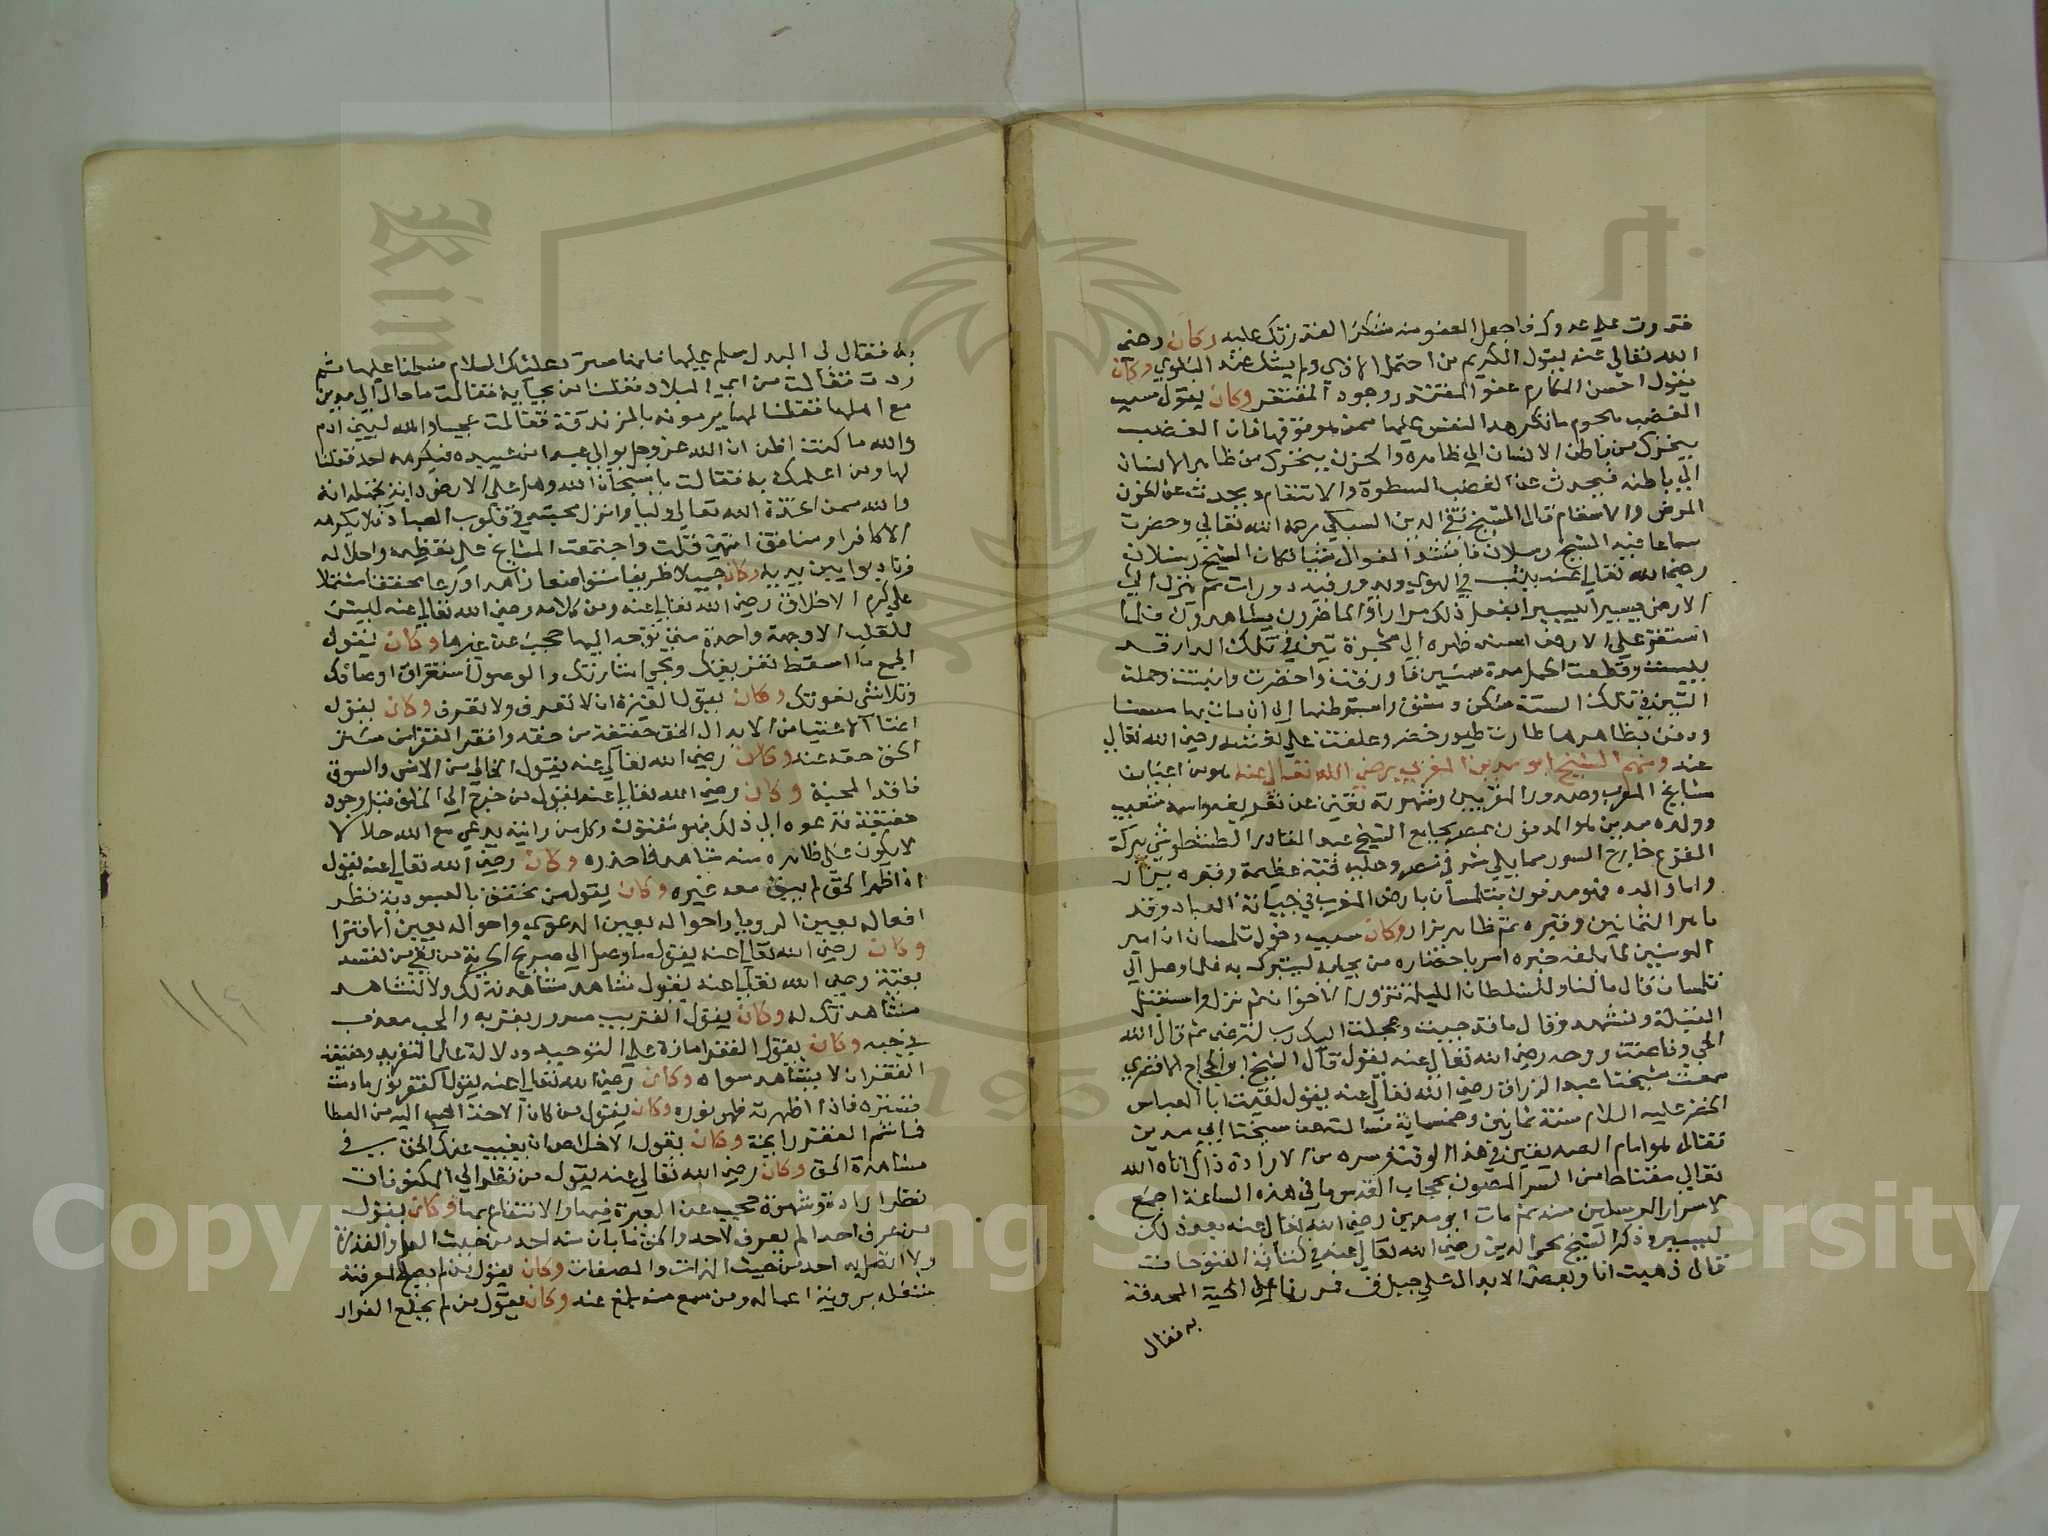 قدرت على عدوك فاجعل العفو منه شكرا لقدرتك عليه وكان رضي
الله تعالى عنه يقول الكريم من احتمل الاذى ولم يشك عند البلوى وكان
يقول احسن المكارم عفو المقتدر وجود المفتقر وكان يقول سبب
الغضب هجوم ما تكرهه النفس عليها ممن هو فوقها فان الغضب
يتحرك من باطن الانسان الى ظاهره والحزن يتحرك من ظاهر الانسان
الى باطنه فيحدث عن الغضب السطوة والانتقام ويحدث عن الحزن
المرض والاسقام قال الشيخ تقي الدين السبكي رحمه الله تعالى وحضرت
سماعا فيه الشيخ رسلان فانشد القوال شيئا فكان الشيخ رسلان
رضي الله تعالى عنه يثب في الهوى ويدور فيه دورات ثم ينزل الى
الارض يسيرا يسيرا يفعل ذلك مرارا والحاضرون يشاهدون فلما
استقر على الارض اسند ظهره الى شجرة تين في تلك الدار قد
يبست وقطعت الحمل مدة سنين فاورقت واخضرت واينعت وحملت
التين في تلك السنة سكن دمشق واستوطنها الى ان مات بها مسنا
ودفن بظاهرها طارت طيور خضر وعكفت على نعشه رضي الله تعالى
عنه ومنهم الشيخ ابو مدين المغربي رضي الله تعالى عنه هو من اعيان
مشايخ المغرب وصدور المقربين وشهرته تغني عن تعريفه واسمه شعيب
وولده مدين هو المدفون بمصر بجامع الشيخ عبد القادر الطشطوشي ببركة
القرع خارج السور مما يلي شرقي مصر وعليه قبة عظيمة وقبره يزار
واما والده فهو مدفون بتلمسان بارض المغرب في جبانة العباد وقد
ناهز الثمانين وقبره ثم ظاهر يزار وكان سبب دخوله تلمسان ان امير
المومنين لما بلغه خبره امر باحضاره من بجاية ليتبرك به فلما وصل الى
تلمسان قال مالنا وللسلطان الليلة نزور الاخوان ثم نزل واستقبل
القبلة وتشهد وقال ها قد جيت وعجلت اليك رب لترضى ثم قال الله
الحي وفاضت روحه رضي الله تعالى عنه يقول قال الشيخ ابو الحجاج الاقصري
سمعت شيخنا عبد الرزاق رضي الله تعالى عنه يقول لقيت ابا العباس
الخضر عليه السلام سنة ثمانين وخمسماية فسالته عن شيخنا ابي مدين
فقال هو امام الصديقين في هذا الوقت وسره من الارادة ذاك اتاه الله
تعالى مفتاحا من السر المصون بحجاب القدس ما في هذه الساعة اجمع
لاسرار المرسلين منه ثم مات ابو مدين رضي الله تعالى عنه بعد ذلك
بيسير وذكر الشيخ محي الدين رضي الله تعالى عنه في كتابه الفتوحات
قال ذهبت انا وبعض الابدال على جبل ق فمررنا على الحية المحدقة
به فقال
به فقال لي البدل سلم عليها فانها سترد عليك السلام فسلمنا عليها ثم
ردت فقالت من اي البلاد فقلنا من بجاية فقالت ما حال ابي مدين
مع اهلها فقلنا لها يرمونه بالزندقة فقالت عجبا والله لبني ادم
والله ما كنت اظن ان الله عز وجل يوالي عبدا من عبيده فيكرهه احد فقلنا
لها ومن اعلمك به فقالت يا سبحان الله وهل على الارض دابة تجهله انه
والله ممن اتخذه الله تعالى وليا وانزل محبته في قلوب العباد فلا يكرهه
الا كافر او منافق انتهى قلت واجتمعت المشايخ على تعظيمه واجلاله
وتادبوا بين يديه وكان جميلا ظريفا متواضعا زاهدا ورعا محققا مشتملا
على كرم الاخلاق رضي الله تعالى عنه ومن كلامه رضي الله تعالى عنه ليس
للقلب الا وجهة واحدة متى توجه اليها حجب عن غيرها وكان يقول
الجمع ما اسقط تفرقتك ومحى اشارتك والوصول استغراق اوصافك
وتلاشي نعوتك وكان يقول الغيرة ان لا تعرف ولا تعرف وكان يقول
اغنى الاغنيا من ابدا له الحق حقيقة من حقه وافقر الفقرا من ستر
الحق حقه عنه وكان رضي الله تعالى عنه يقول الخالي من الانس والشوق
فاقد المحبة وكان رضي الله تعالى عنه يقول من خرج الى الخلق قبل وجود
حقيقة تدعوه الى ذلك فهو مفتون وكل من رايته يدعي مع الله حالا
لا يكون على ظاهره منه شاهد فاحذره وكان رضي الله تعالى عنه يقول
اذا ظهر الحق لم يبق معه غيره وكان يقول من تحقق بالعبودية نظر
افعاله بعين الريا واحواله بعين الدعوى واقواله بعين الافترا
وكان رضي الله تعالى عنه يقول ما وصل الى صريح الحرية من بقي من نفسه
بقية رضي الله تعالى عنه يقول شاهد مشاهدته لك ولا تشاهد
مشاهدتك له وكان يقول القريب مسرور بقربه والمحب معذب
في حبه وكان يقول الفقر امارة على التوحيد ودلالة على التفريد وحقيقة
الفقر ان لا يشاهد سواه وكان رضي الله تعالى عنه يقول للفقر نور ما دمت
تستره فاذا اظهرته ظهر نوره وكان يقول من كان الاخذ احب اليه من العطا
فما شم للفقر رايحة وكان يقول الاخلاص ان يغيب عنك الخلق في
مشاهدة الحق وكان رضي الله تعالى عنه يقول من نظر الى المكنونات
نظر ارادة وشهوة حجب عن العبرة فيها والانتفاع بها وكان يقول
من عرف احدا لم يعرف الاحد والحق ما بان منه احد من حيث العلم والقدرة
ولا اتصل به احد من حيث الذات والصفات وكان يقول من لم يصلح لمعرفته
شغله بروية اعماله ومن سمع منه بلغ عنه وكان يقول من لم يخلع العذار
١١٤